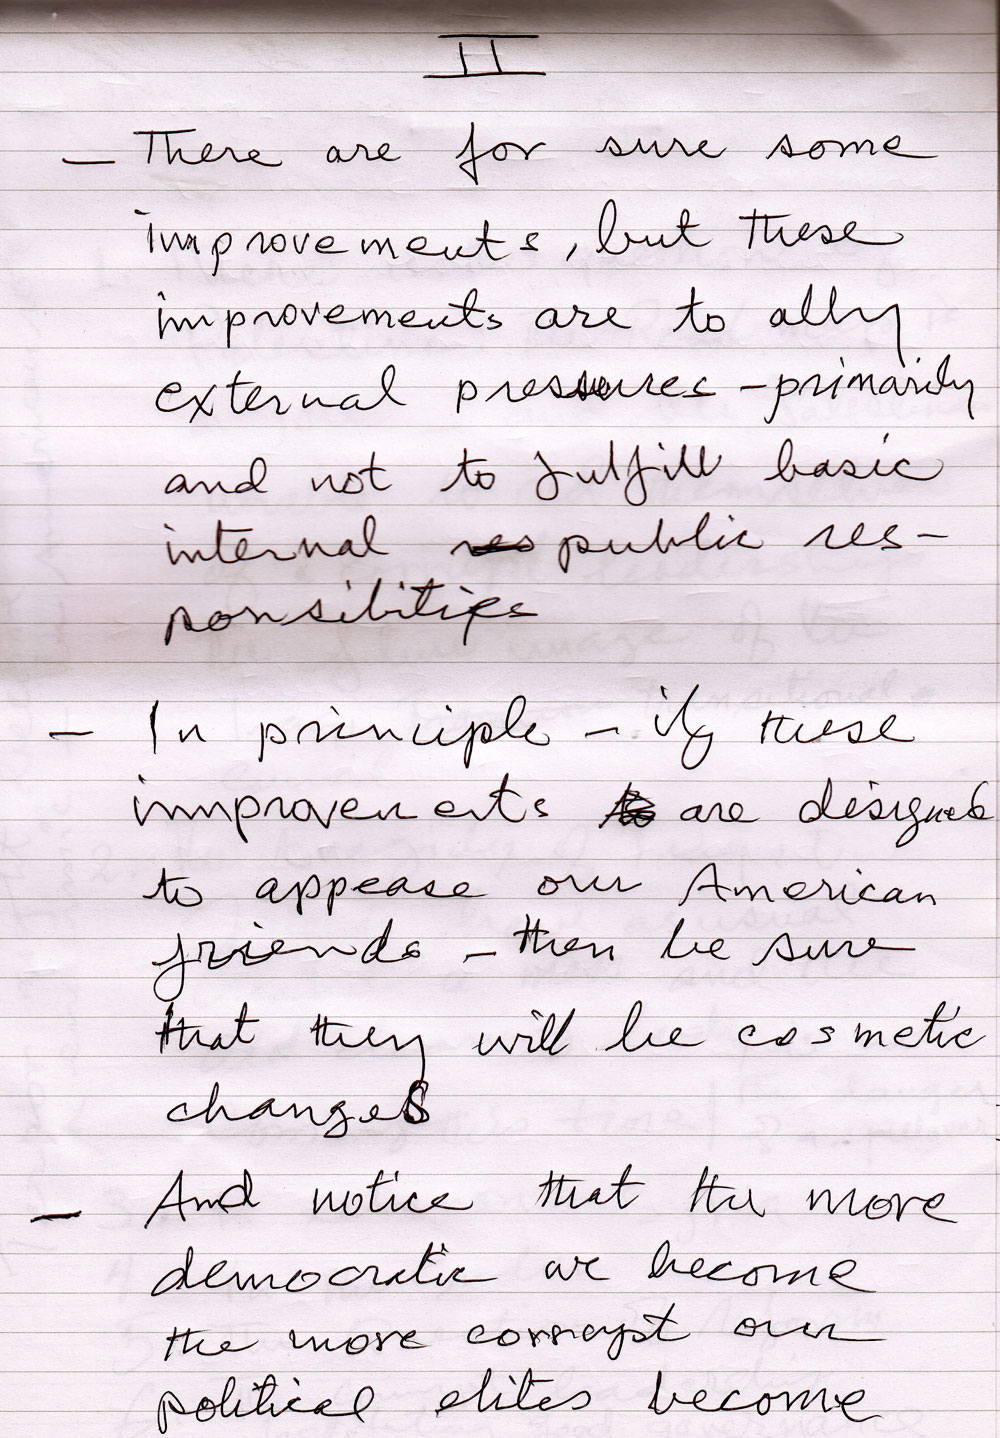 II
- There are for sure some
improvements, but these
improvements are to ally
external pressures - primarily
and not to fulfill basic
internal public res-
ponsibilities
- In principle - if these
improvements are designed
to appease our American
friends - then be sure
that they will be cosmetic
changes
- And notice that the more
democratic we become
the more corrupt our
political elites become